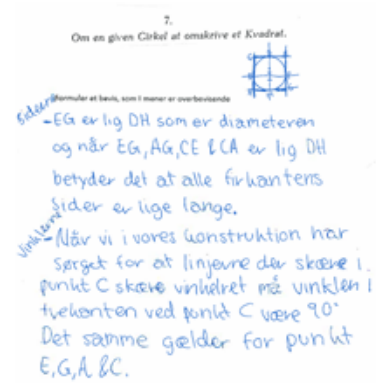 7.
Om en given Cirkel at omskrive et Kvadrat.
Formuler et bevis, som I mener er overbevisende
Siderne
- EG er lig DH som er diameteren
og når EG, AG, CE & CA er lig DH
betyder det at alle firhantens
Sider er lige lange.
Vinklerne
- Når vi i vores konstruktion har
sørget for at linjerne der skære i
punkt C skære vinkelret må vinklen i
trekanten ved punkt C være 90°
Det samme gælder for punkt
E, G, A & C.